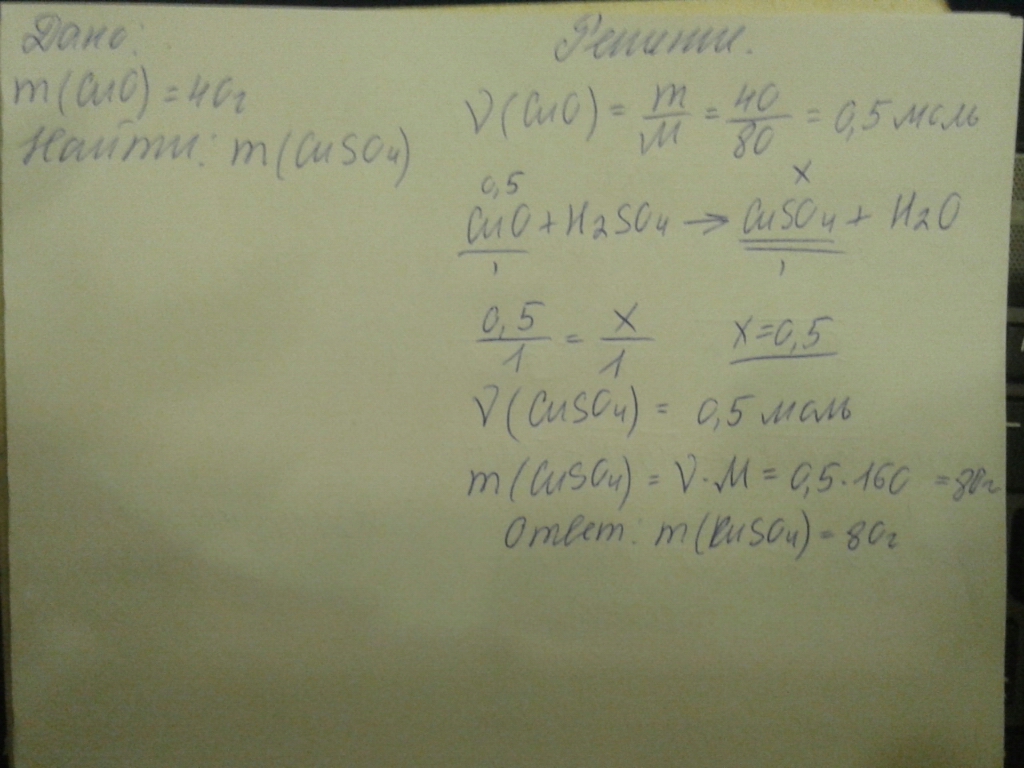 Дано:
m(CuO) = 40г
Найти: m(CuSO4)
Решение.
ν(CuO) = m/M = 40/80 = 0,5 моль
0,5 x
CuO + H2SO4 → CuSO4 + H2O
1 1
0,5/1 = x/1 x=0,5
ν(CuSO4) = 0,5 моль
m(CuSO4) = ν·M = 0,5·160 = 80г
Ответ: m(CuSO4) = 80г